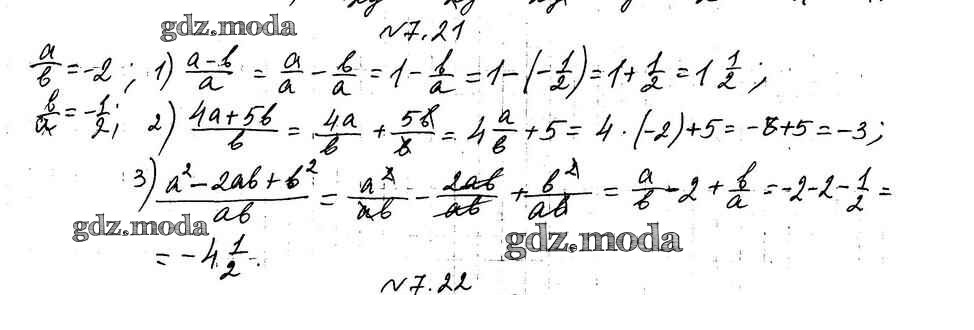 gdz.moda
№7.21
a/b = -2; 1) (a-b)/a = a/a - b/a = 1 - b/a = 1-(-1/2) = 1+1/2 = 1 1/2;
b/a = -1/2; 2) (4a+5b)/b = 4a/b + 5b/b = 4 a/b + 5 = 4 · (-2)+5 = -8+5 = -3;
3) (a²-2ab+b²)/ab = a²/ab - 2ab/ab + b²/ab = a/b - 2 + b/a = -2-2-1/2 =
gdz.moda
gdz.moda
= -4 1/2.
№7.22